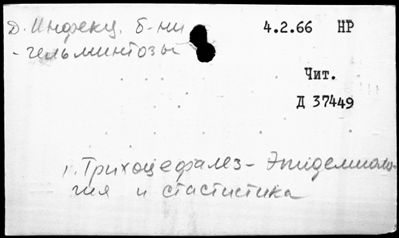 Д. Инфекц. б-ни
- гельминтозы
4.2.66 НР
Чит.
Д 37449
1. Трихоцефалез - Эпидемиоло-
гия и стастистика